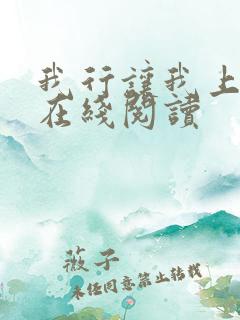 我行讓我上
在綫閱讀
薇子
未经同意禁止转载